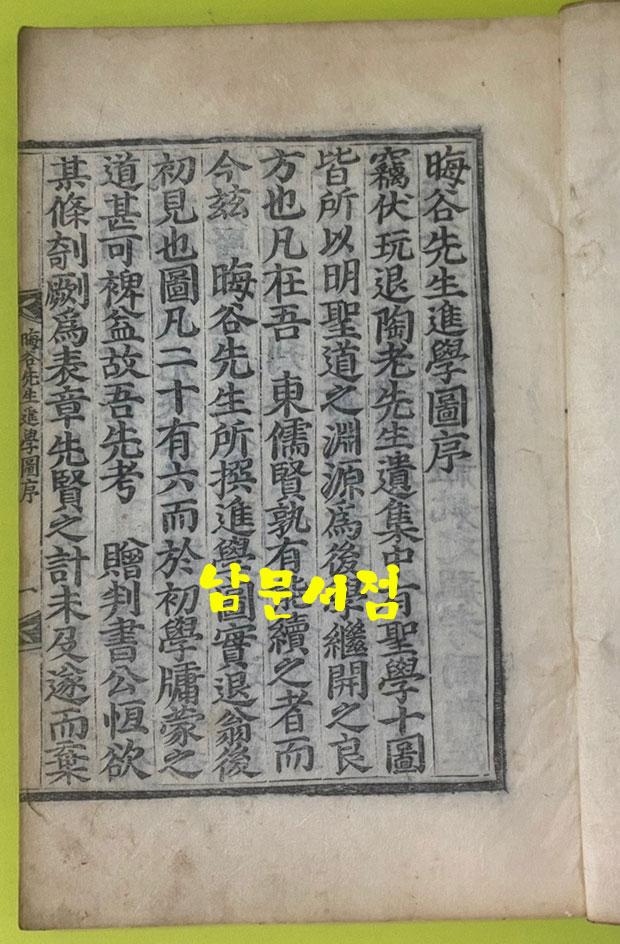 晦谷先生進學圖序
竊伏玩退陶老先生遺集中有聖學十圖
皆所以明聖道之淵源爲後學繼開之良
方也凡在吾 東儒賢孰有能續之者而
今玆 晦谷先生所撰進學圖實退翁後
初見也圖凡二十有六而於初學牖蒙之
道甚可裨益故吾先考 贈判書公恆欲
某條剞劂爲表章先賢之計未及遂而棄
晦谷先生進學圖序 一
남문서점